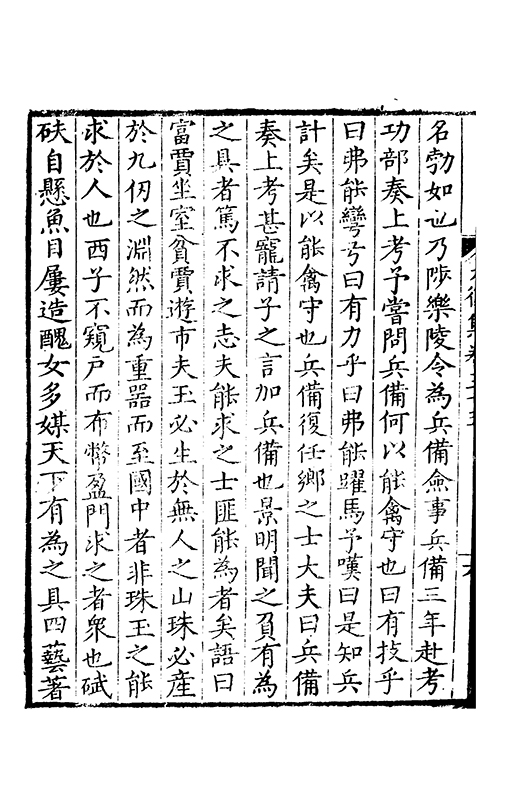 名勃如也乃陟樂陵令為兵備僉事兵備三年赴考
功部奏上考予嘗問兵備何以能禽守也曰有技乎
曰弗能彎弓曰有力乎曰弗能躍馬予嘆曰是知兵
計矣是以能禽守也兵備復任鄉之士大夫曰兵備
奏上考甚寵請子之言加兵備也景明聞之負有為
之具者篤不求之志夫能求之士匪能為者矣語曰
富賈坐室貧賈遊市夫玉必生於無人之山珠必產
於九仞之淵然而為重器而至國中者非珠玉之能
求於人也西子不窺戶而布幣盈門求之者衆也碔
砆自懸魚目屢造醜女多媒天下有為之具四藝著